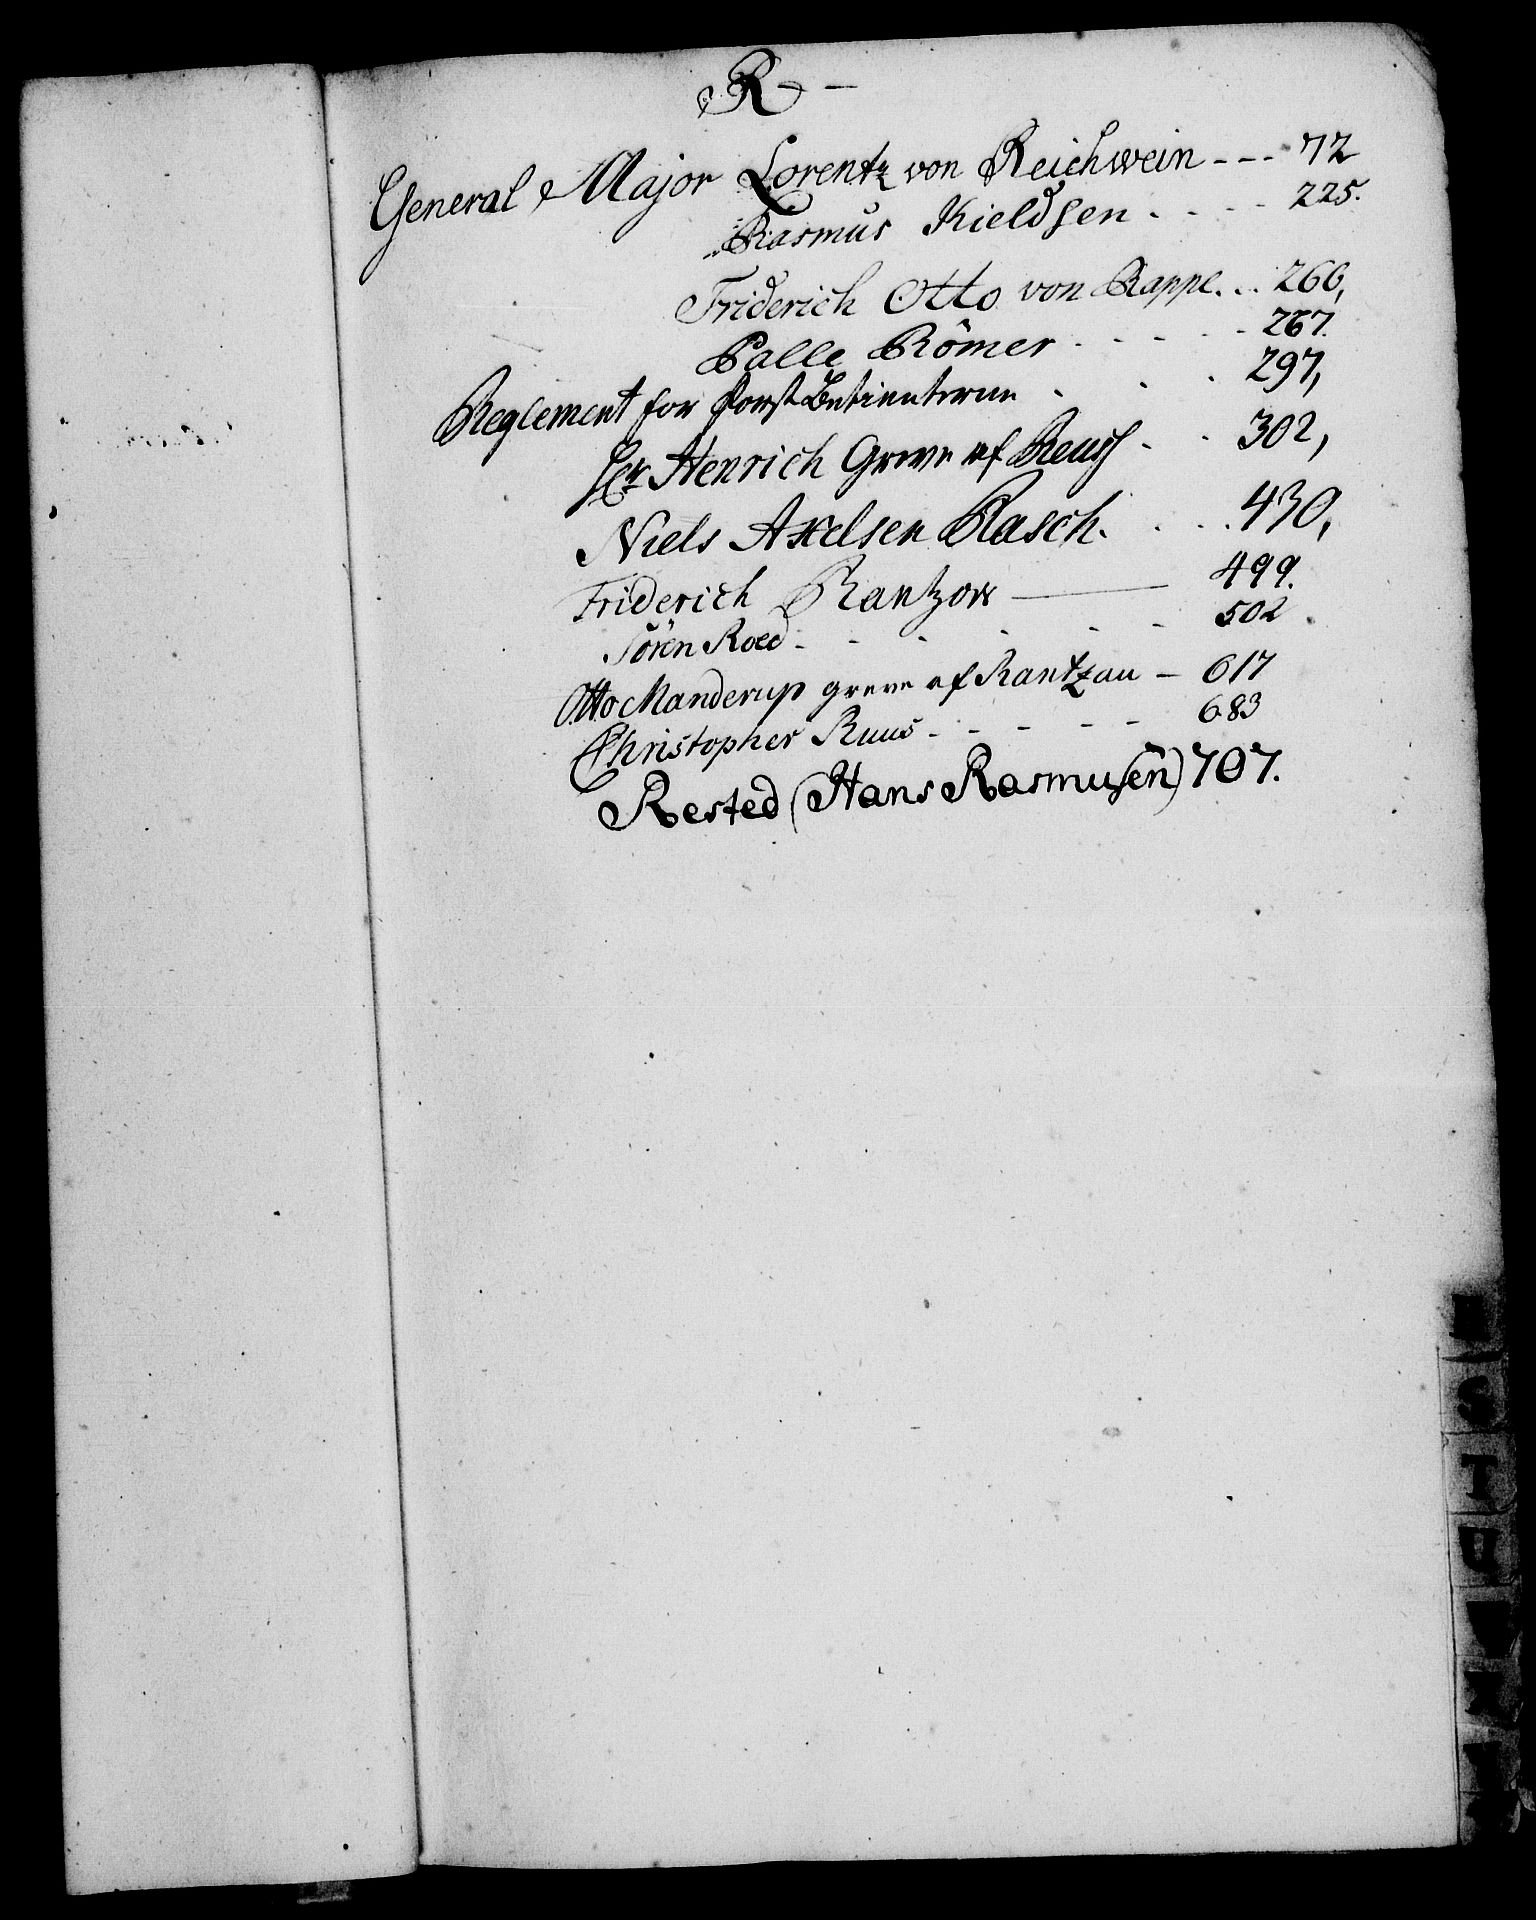 R -
General Major Lorentz von Reichwein - - - 72
Rasmus Kieldsen . . . . 225.
Friderich Otto von Rappe. . . 266,
Palle Römer . . . . . 267.
Reglement for Forst Betienterne . . . 297,
Hr Henrich Greve af Reusz . . 302,
Niels Axelsen Rasch. . . . 430,
Friderich Rantzow — 499.
Sören Roed. - - - - - 502.
Otto Manderup greve af Rantzau - 617
Christopher Ruus - - - - 683
Rested (Hans Rasmusen) 707.
R
S
T
U